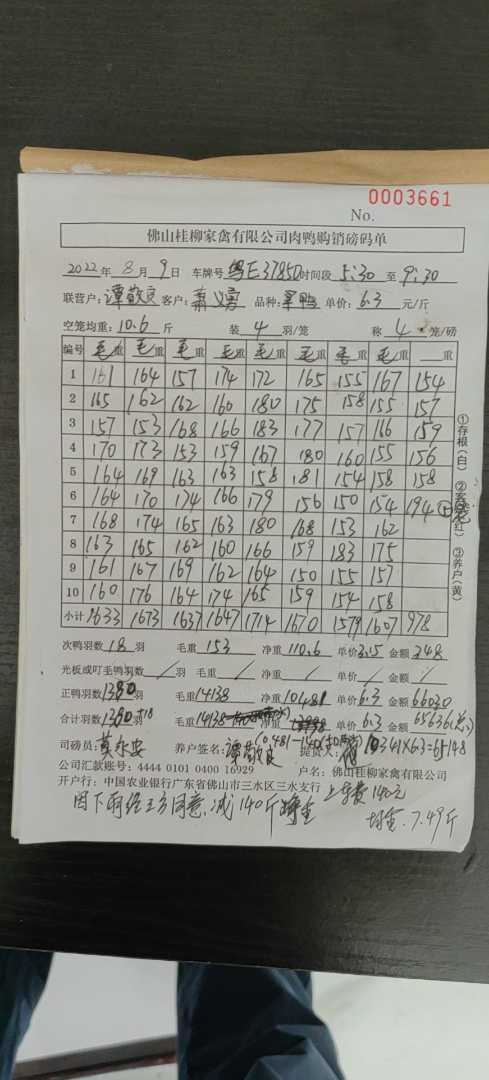 0003661
No.
佛山桂柳家禽有限公司肉鸭购销磅码单
2022年 8月 9日 车牌号 粤E37850 时间段 5:30 至 9:30
联营户: 谭敬良 客户: 萧义勇 品种: 单价: 6.3 元/斤
空笼均重: 10.6 斤 装 4 羽/笼 称 4 笼/磅
编号 毛重 毛重 毛重 毛重 毛重 毛重 毛重 毛重 重
1 161 164 157 174 172 165 155 167 154
2 165 162 162 160 180 175 158 155 157
3 157 153 168 166 183 177 157 166 159
4 170 173 153 159 167 180 160 155 156
5 164 169 163 163 158 181 154 158 158
6 164 170 174 166 179 156 150 154 194
7 168 174 165 163 180 168 153 162
8 163 165 162 160 166 159 183 175
9 161 167 169 162 164 150 155 157
10 160 176 164 174 165 159 154 158
小计 1633 1673 1637 1647 1714 1670 1579 1607 978
①存根(白) ②客户(红) ③养户(黄)
次鸭羽数 18 羽 毛重 153 净重 110.6 单价 3.15 金额 348
光板或叮毛鸭羽数 / 羽 毛重 / 净重 / 单价 / 金额 /
正鸭羽数 1380 羽 毛重 14138 净重 10481 单价 6.3 金额 66030
合计羽数 1380+18 毛重 14138 净重 单价 6.3 金额 65636
司磅员: 莫尔安 养户签名: 谭敬良 提货人: 10341×6.3=65148
公司汇款账号: 4444 0101 0400 16929 户名: 佛山桂柳家禽有限公司
开户行: 中国农业银行广东省佛山市三水区三水支行 上车费140元
因下雨经三方同意,减140斤 均重:7.49斤